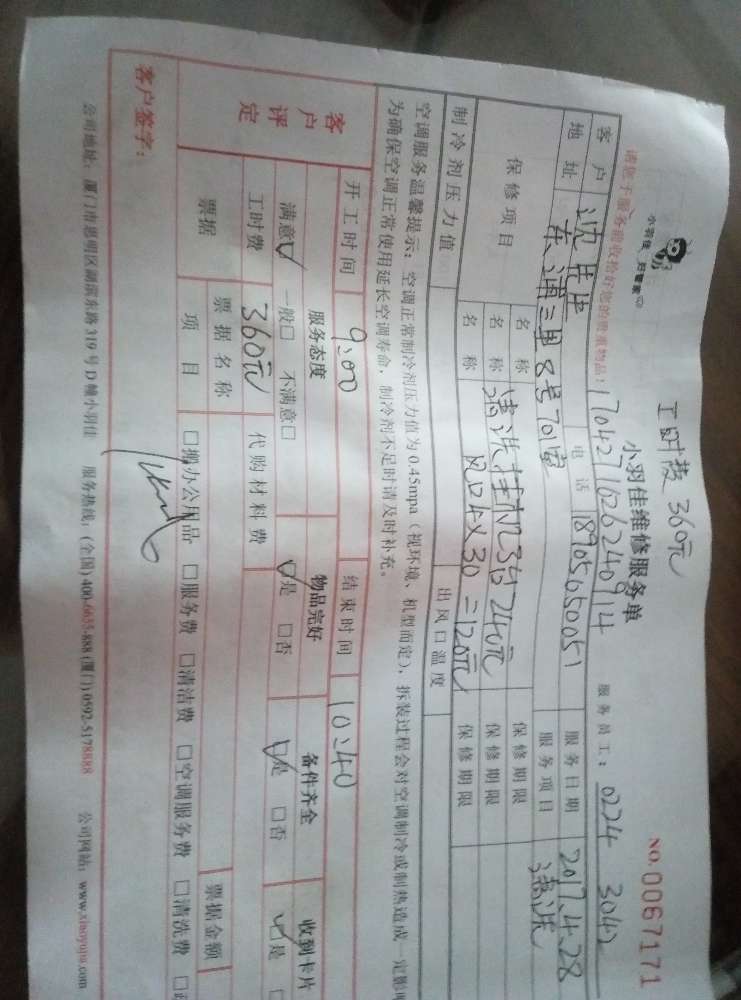 工时费 360元
小羽佳 好管家
小羽佳维修服务单
NO.0067171
请您于服务前收拾好您的贵重物品!
1704271626240914
服务员工: 0224 3042
客户
电话 18905050051
服务日期 2017.4.28
地址 东浦三里8号701室
服务项目 清洗
保修项目
名称
保修期限
名称 清洗挂机3台240元
保修期限
名称 风口4×30=120元
保修期限
制冷剂压力值
出风口温度
空调服务温馨提示:空调正常制冷剂压力值为0.45mpa(视环境、机型而定),拆装过程会对空调制冷或制热造成一定影
为确保空调正常使用延长空调寿命,制冷剂不足时请及时补充。
开工时间 9:00
结束时间 10:40
客户评定
服务态度
物品完好
备件齐全
收到卡片
满意☑ 一般□ 不满意□
☑是 □否
☑是 □否
☑是
工时费 360元
代购材料费
票据
票据名称
票据金额
项目
□搬办公用品 □服务费 □清洁费 □空调服务费 □清洗费
客户签字:
公司地址:厦门市思明区湖滨东路319号D幢小羽佳 服务热线:(全国)400-6655-888 (厦门)0592-5178888 公司网站:www.xiaoyujia.com